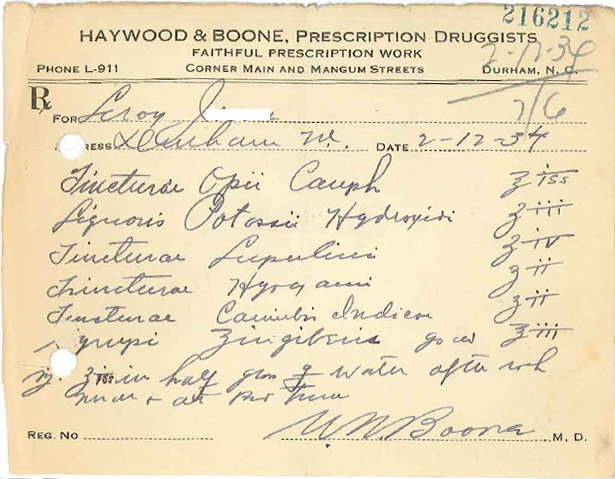 216212
HAYWOOD & BOONE, PRESCRIPTION DRUGGISTS
FAITHFUL PRESCRIPTION WORK
2-12-34
PHONE L-911 CORNER MAIN AND MANGUM STREETS DURHAM, N. C.
℞
FOR Leroy
RESS Durham DATE 2-12-34
Tincturae Opii Camph ʒ iss
Liquoris Potassii Hydroxidi ʒ iii
Tincturae Lupulini ʒ iv
Tincturae Hyoscyami ʒ ii
Tincturae Cannabis Indicae ʒ ii
Syrupi Zingiberis ʒ iii
in half glass of water after each
meal & at Bed Time
REG. NO W. N. Boone M. D.